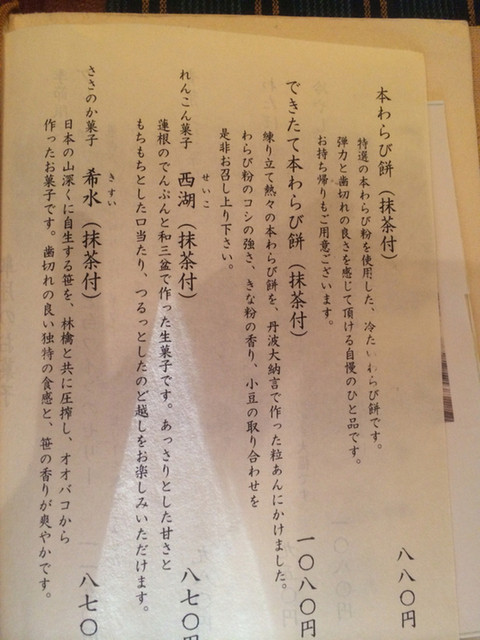 本わらび餅（抹茶付）　八八〇円
特選の本わらび粉を使用した、冷たいわらび餅です。
弾力と歯切れの良さを感じて頂ける自慢のひと品です。
お持ち帰りもご用意ございます。
できたて本わらび餅（抹茶付）　一〇八〇円
練り立て熱々の本わらび餅を、丹波大納言で作った粒あんにかけました。
わらび粉のコシの強さ、きな粉の香り、小豆の取り合わせを
是非お召し上り下さい。
れんこん菓子　西湖（抹茶付）　八七〇円
せいこ
蓮根のでんぷんと和三盆で作った生菓子です。あっさりとした甘さと
もちもちとした口当たり、つるっとしたのど越しをお楽しみいただけます。
ささのか菓子　希水（抹茶付）　八七〇
きすい
日本の山深くに自生する笹を、林檎と共に圧搾し、オオバコから
作ったお菓子です。歯切れの良い独特の食感と、笹の香りが爽やかです。